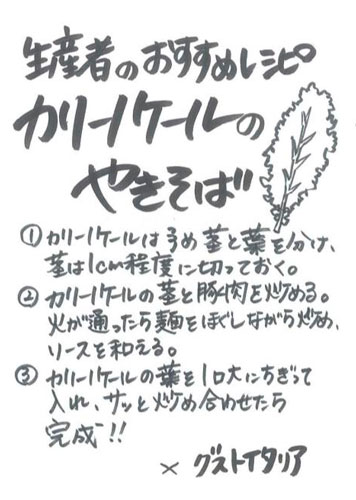 生産者のおすすめレシピ
カリーノケールの
やきそば
① カリーノケールは予め茎と葉を分け、
茎は1cm程度に切っておく。
② カリーノケールの茎と豚肉を炒める。
火が通ったら麺をほぐしながら炒め、
ソースを和える。
③ カリーノケールの葉を1口大にちぎって
入れ、サッと炒め合わせたら
完成!!
× グストイタリア